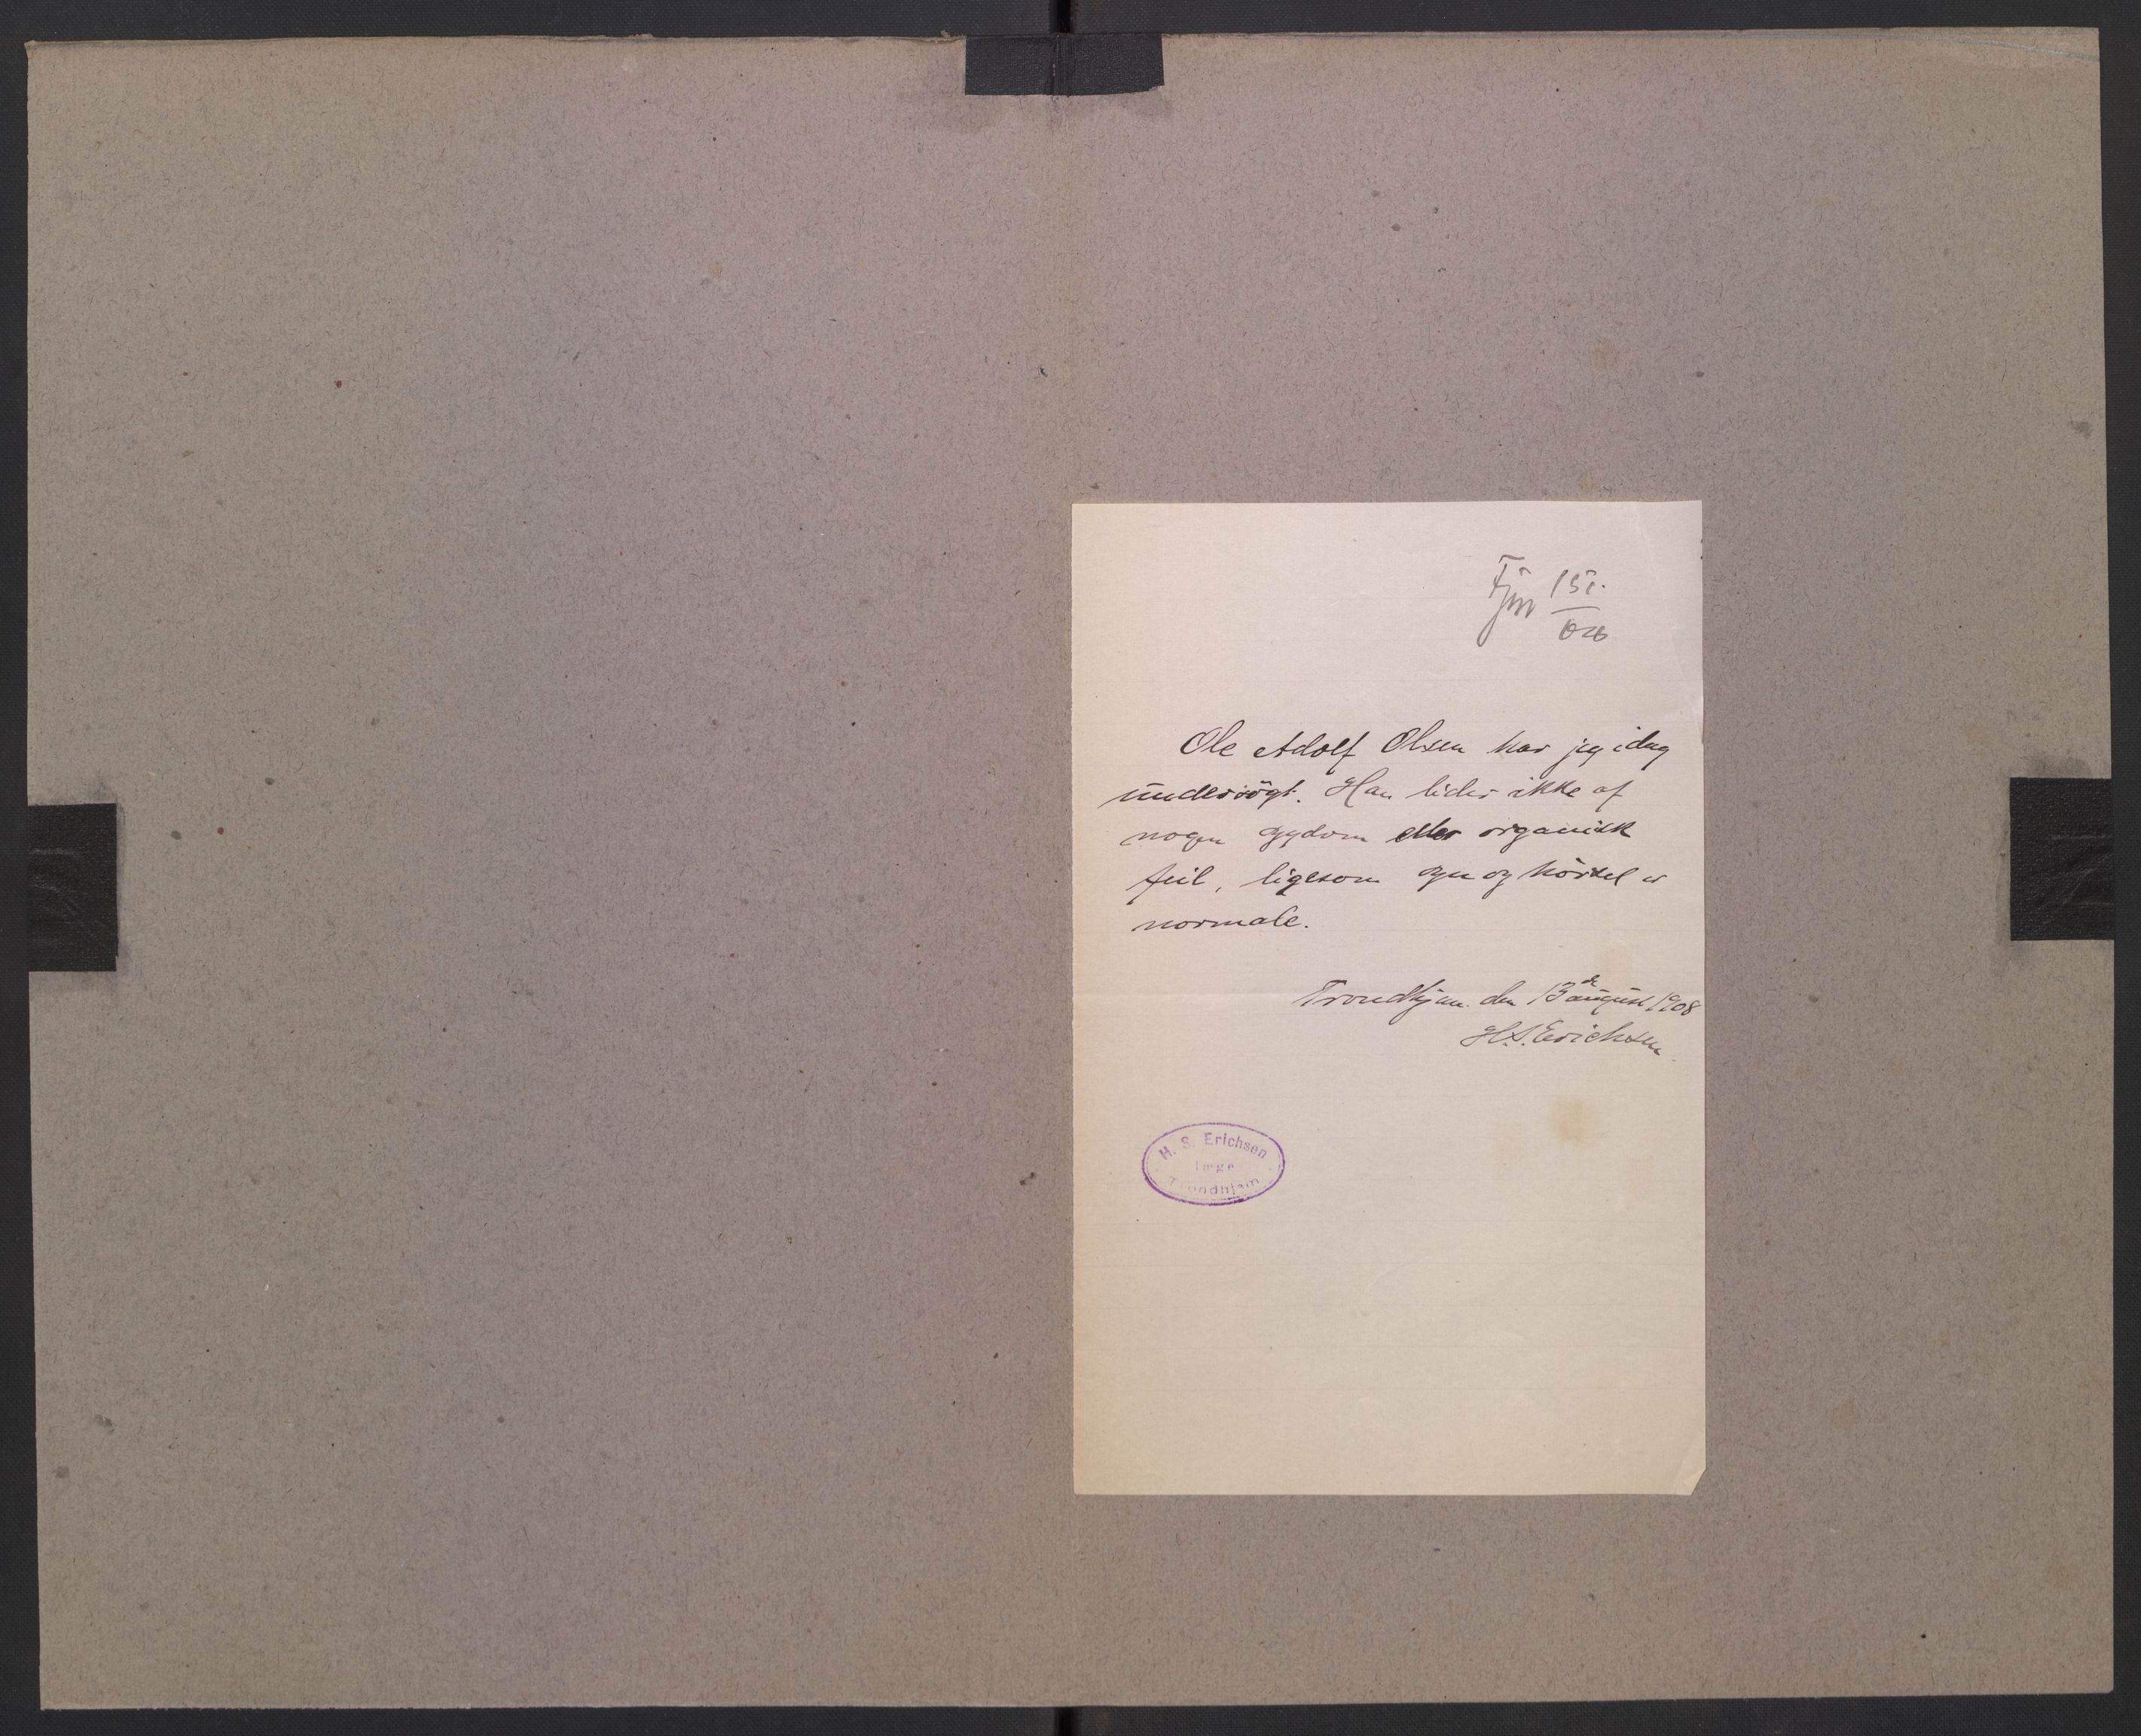 151.
Ole Adolf Olsen har jeg idag
undersøgt. Han lider ikke af
nogen sygdom eller organisk
feil, ligesom syn og hørsel er
normale.
Trondhjem den 13de august 1908
H. S. Erichsen
H. S. Erichsen
læge
Trondhjem